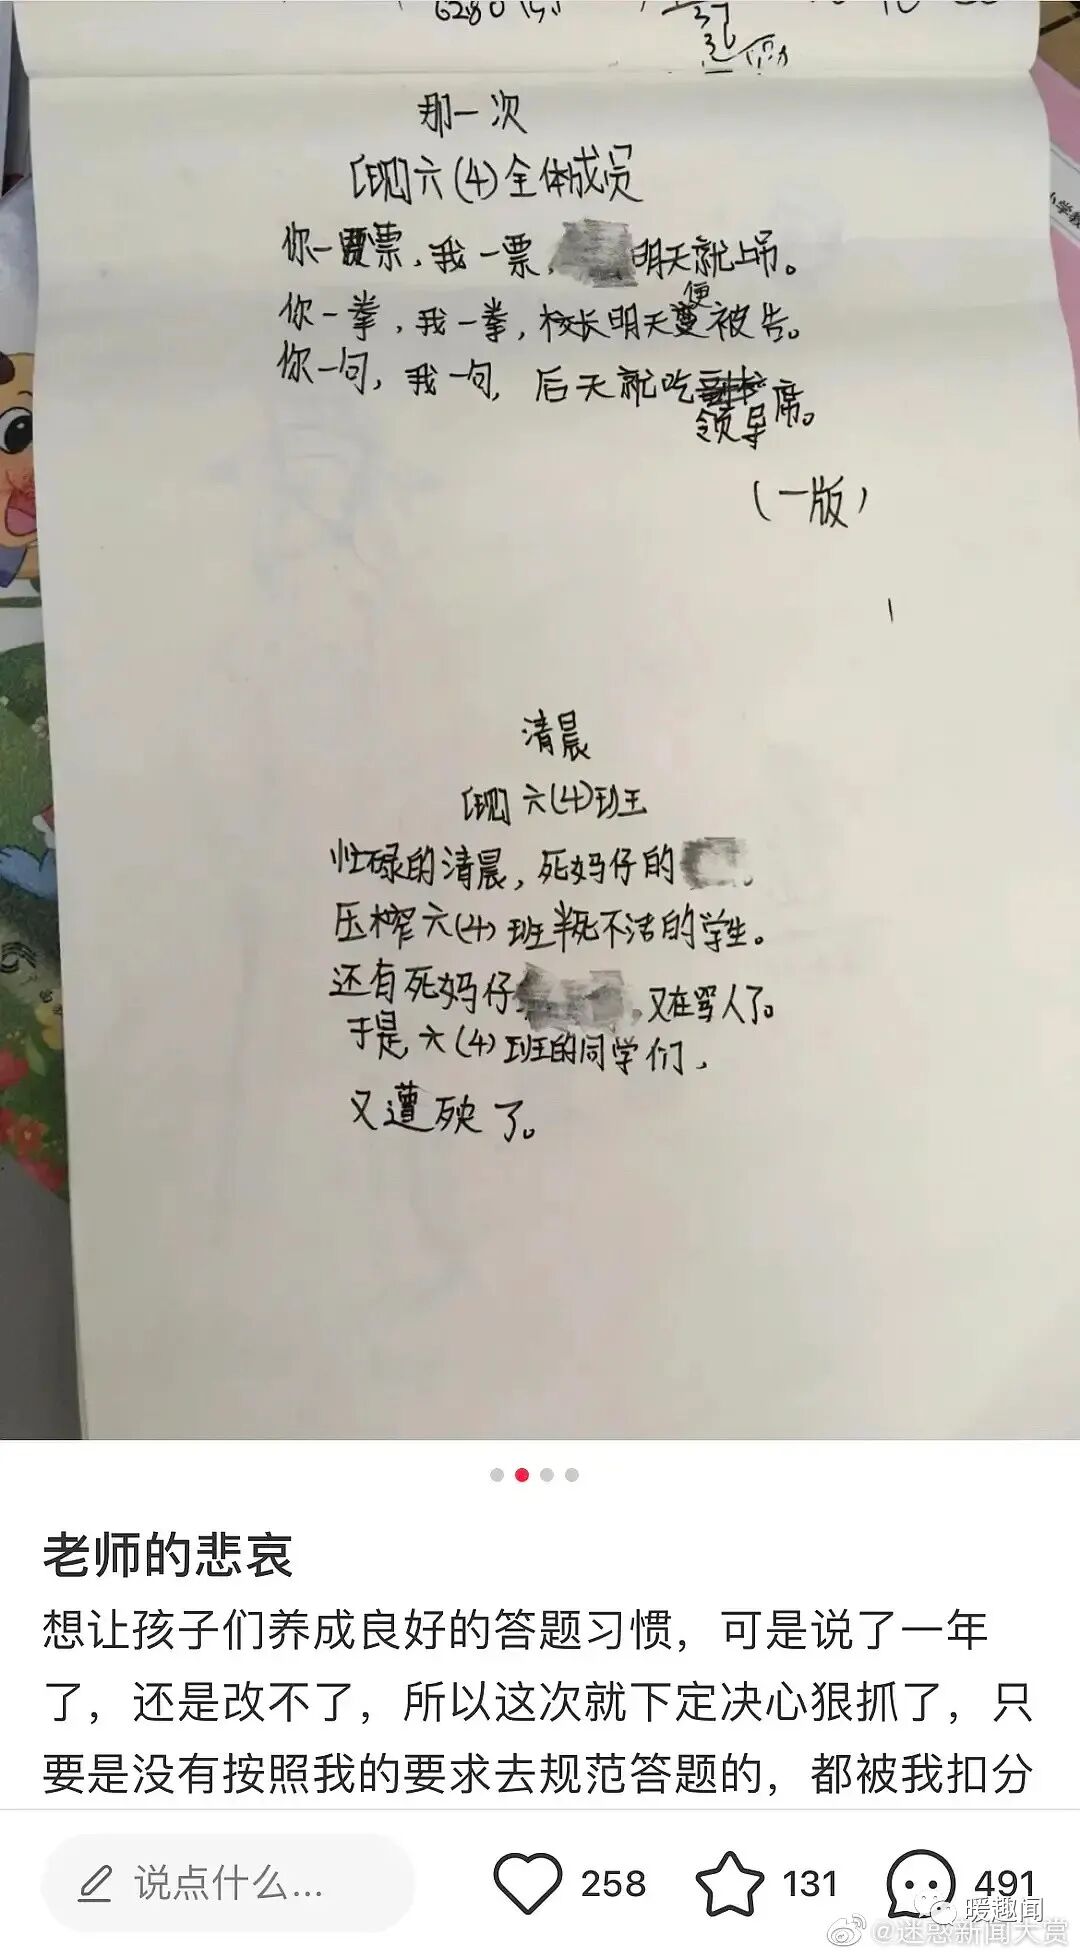 6280
那一次
[现]六(4)全体成员
你一票,我一票,明天就上吊。
你一拳,我一拳,校长明天便被告。
你一句,我一句,后天就吃领导席。
(一版)
清晨
[现]六(4)班
忙碌的清晨,死妈仔的
压榨六(4)班半死不活的学生。
还有死妈仔,又在骂人了。
于是,六(4)班的同学们,
又遭殃了。
老师的悲哀
想让孩子们养成良好的答题习惯，可是说了一年
了，还是改不了，所以这次就下定决心狠抓了，只
要是没有按照我的要求去规范答题的，都被我扣分
说点什么...
258
131
491
暖趣闻
@迷惑新闻大赏